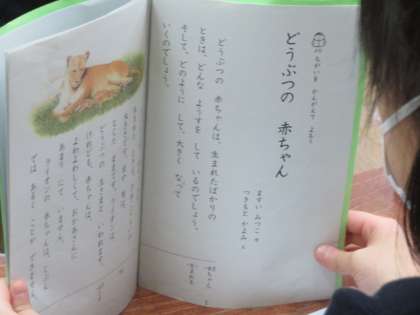 ちがいを かんがえて よもう
どうぶつの 赤ちゃん
ますい みつこ 文
どうぶつの 赤ちゃんは、生まれたばかりの
ときは、どんな ようすを して いるのでしょう。
そして、どのように して、大きく なって
いくのでしょう。
赤ちゃん
生まれる
どうぶつの 王さまと いわれます。
けれども、赤ちゃんは、
よわよわしくて、おかあさんに
あまり にて いません。
ライオンの 赤ちゃんは、じぶん
では あるく ことが できません。